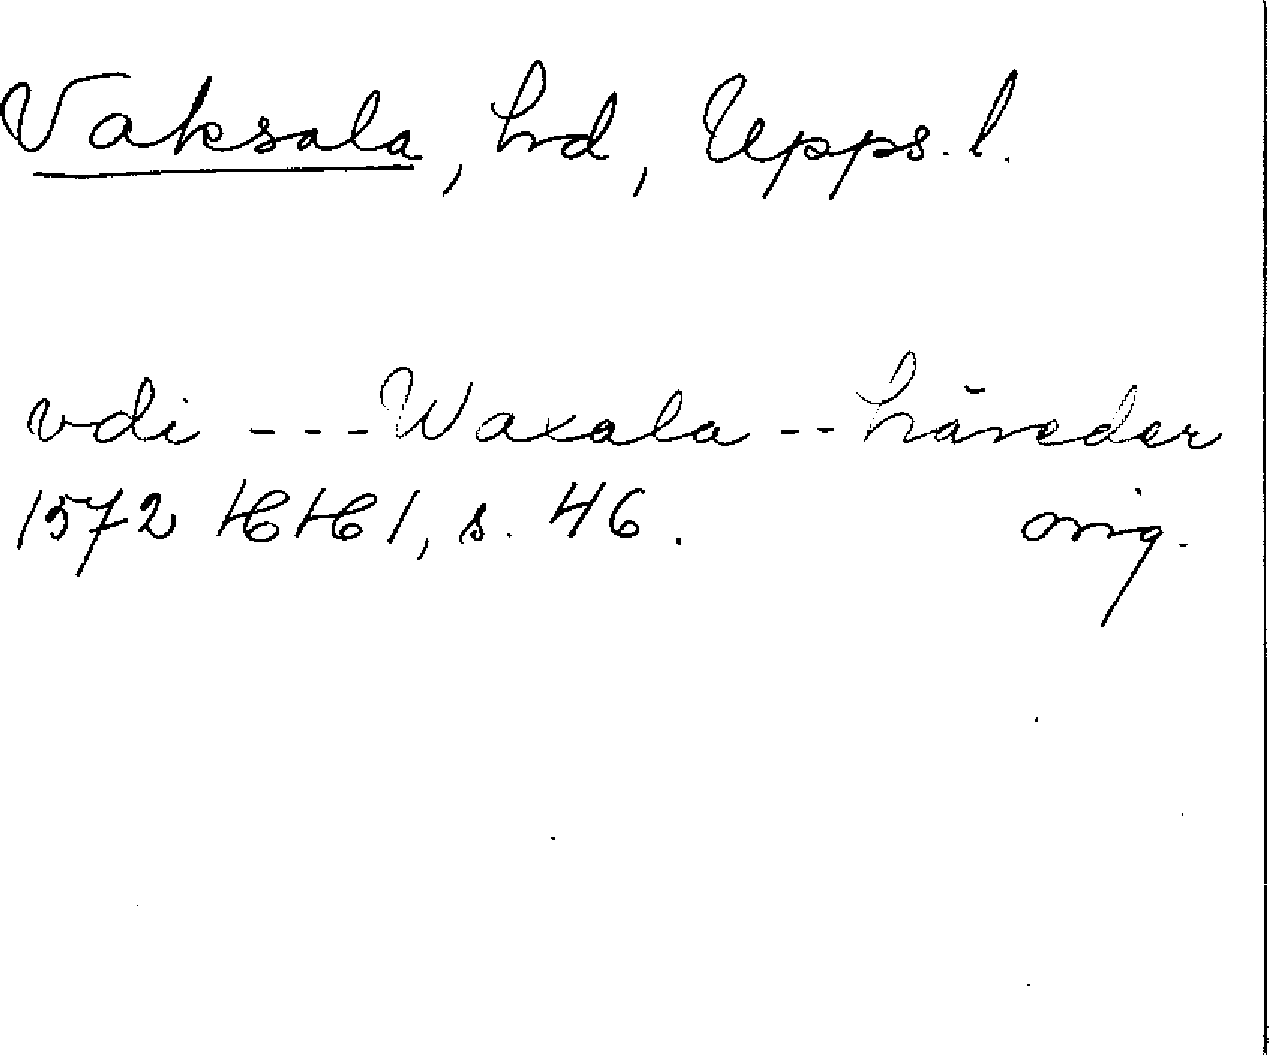 Vaksala, hd, Upps. l.
vdi --- Waxala -- häreder
1572 HH 1, s. 46.
orig.